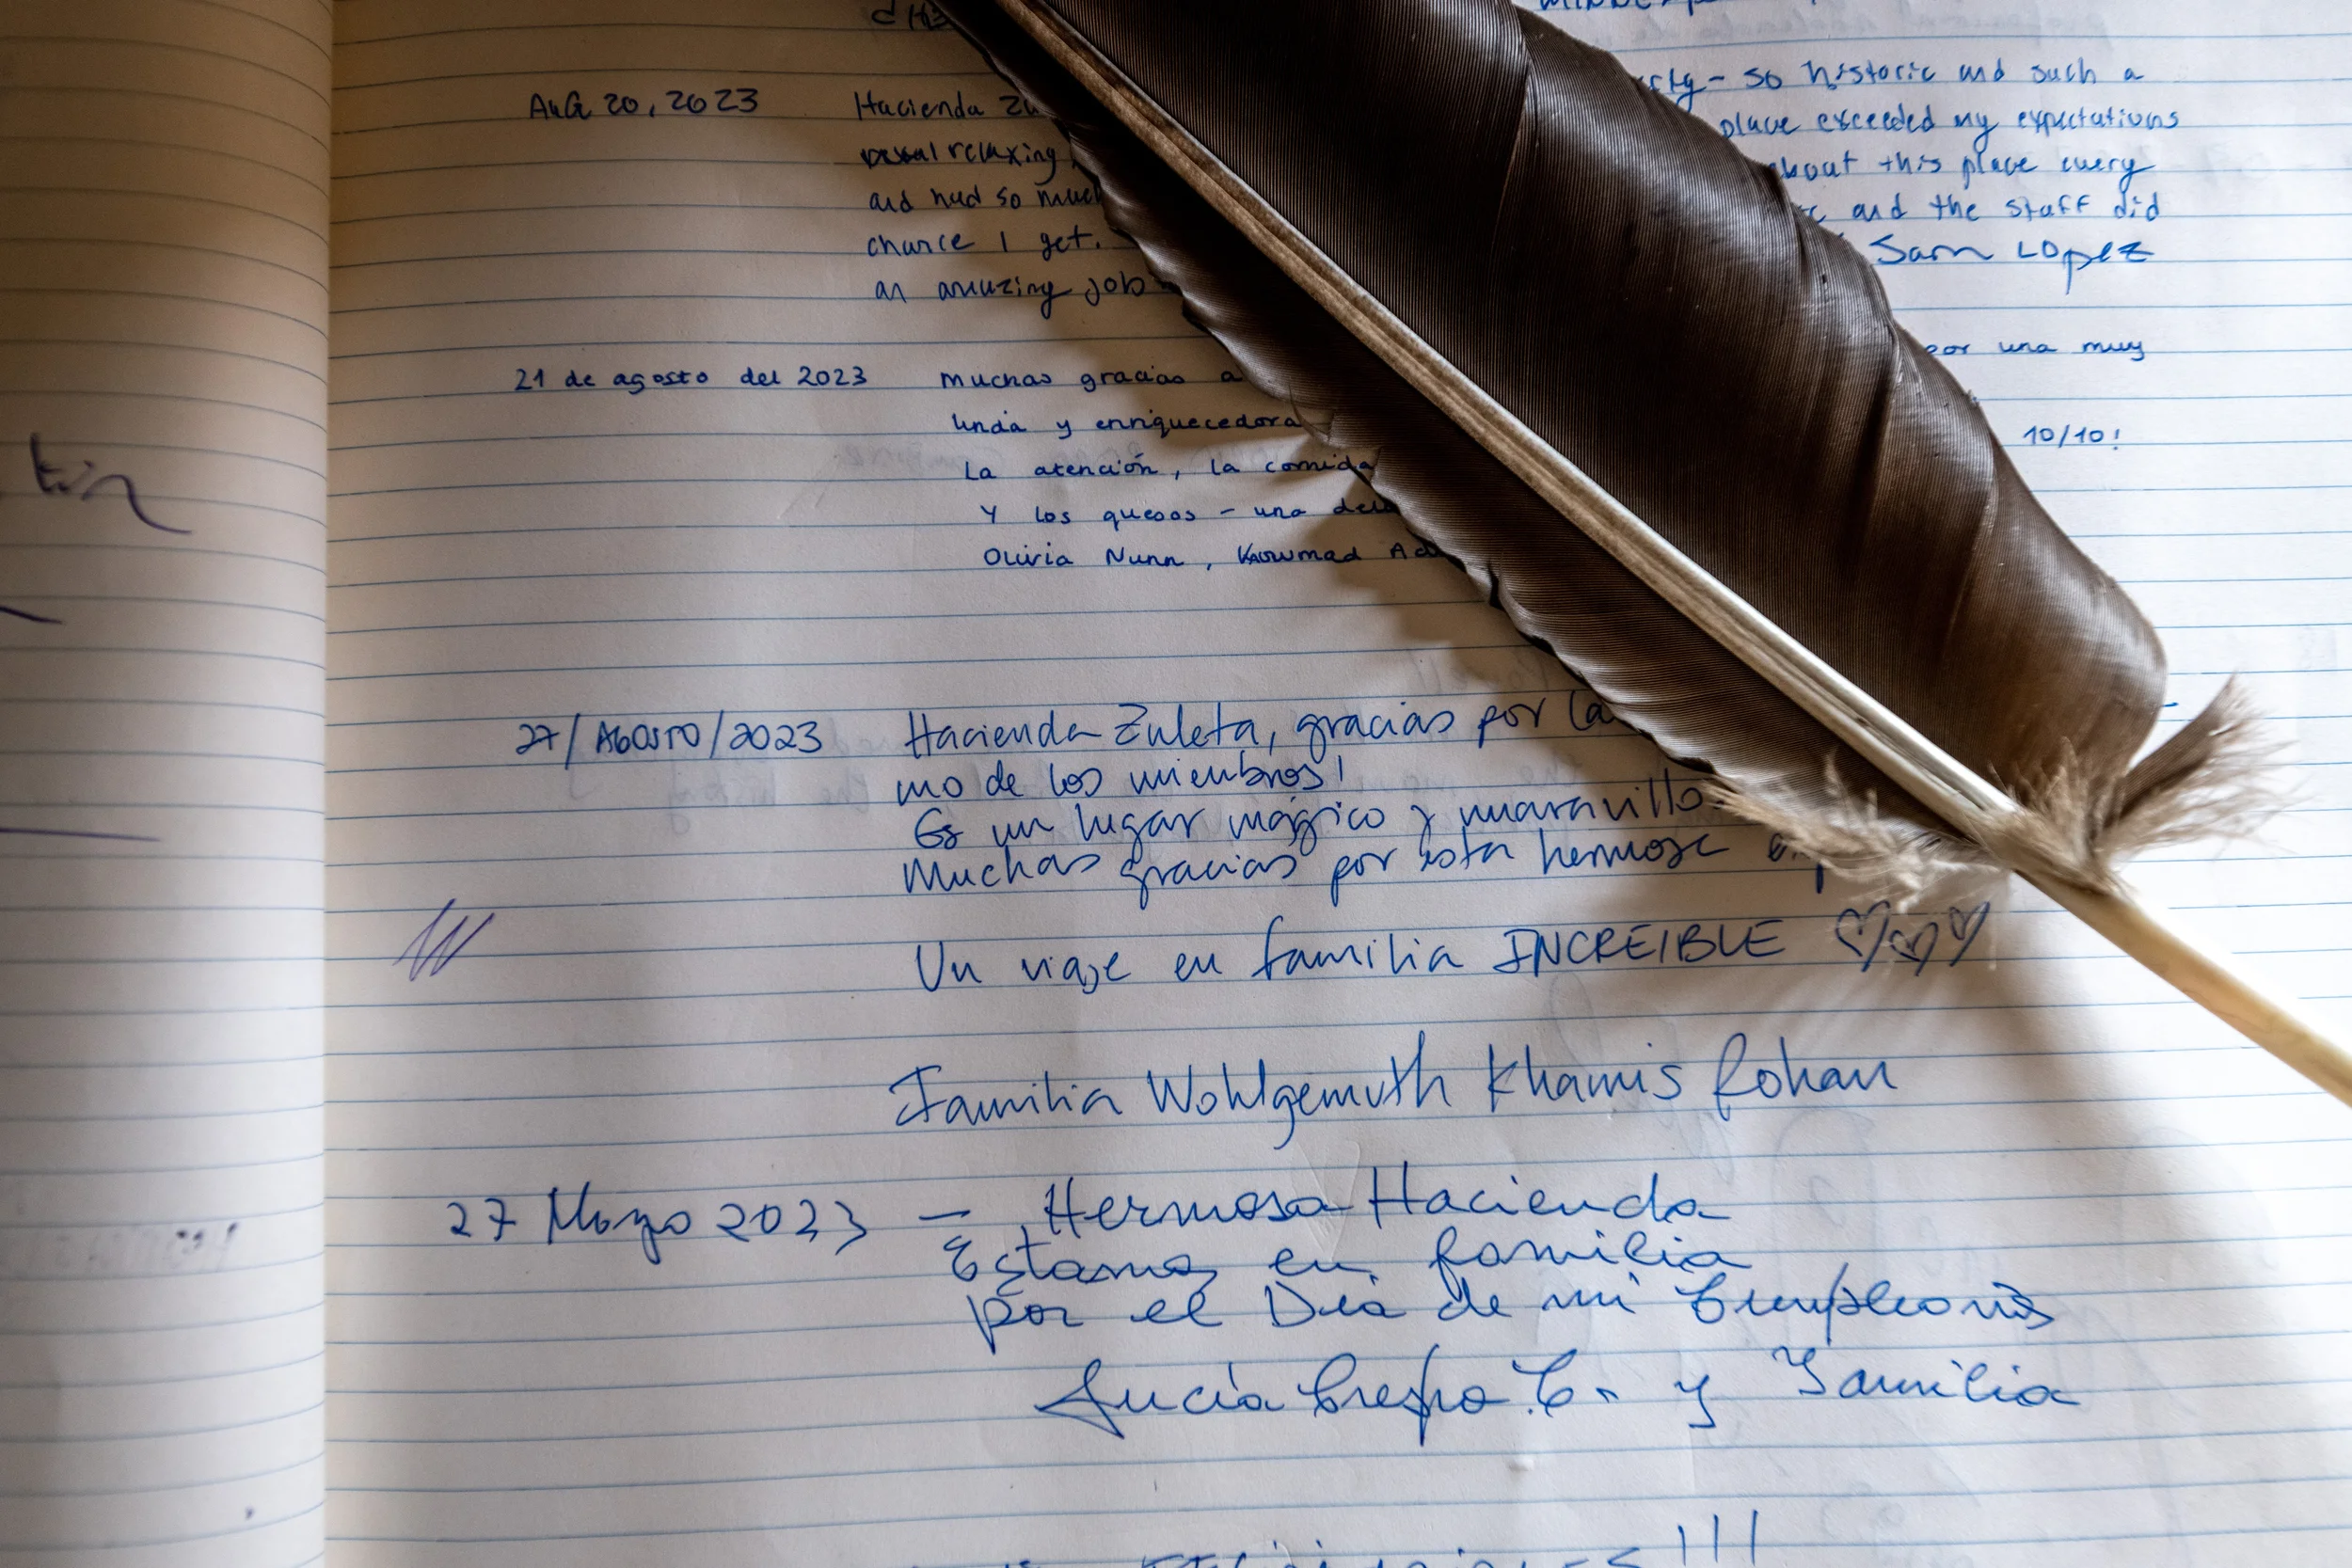 Aug 20, 2023 Hacienda Zu
so historic and such a
relaxing place exceeded my expectations
and had so much about this place every
chance I get. and the staff did
an amazing job Sam Lopez
21 de agosto del 2023 Muchas gracias a por una muy
linda y enriquecedora
La atención, la comida 10/10!
Y los quesos - una
Olivia Nunn,
27/AGOSTO/2023 Hacienda Zuleta, gracias por la
mo de los miembros!
Es un lugar mágico y maravillo
Muchas gracias por esta hermosa
Un viaje en familia INCREIBLE ♡♡♡
Familia Wohlgemuth Khamis Rohan
27 Mayo 2023 – Hermosa Hacienda
Estamos en familia
por el Dia de mi Cumpleaños
Lucía Crespo C. y Familia
!!!